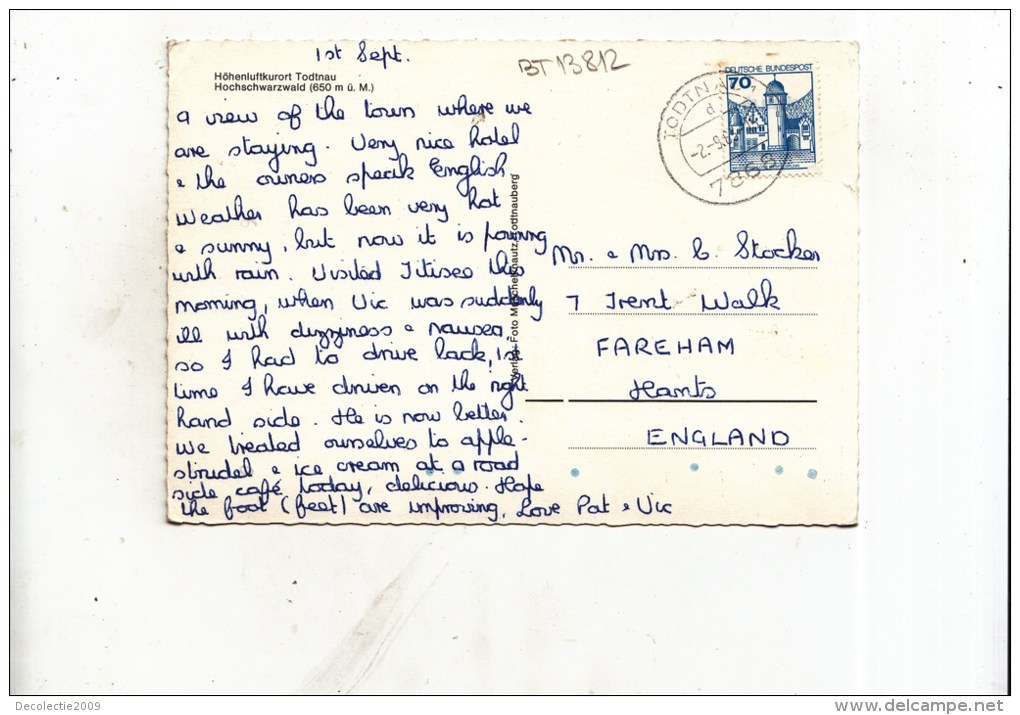 1st Sept.
BT 13812
Höhenluftkurort Todtnau
Hochschwarzwald (650 m ü. M.)
a view of the town where we
are staying. Very nice hotel
& the owners speak English
Weather has been very hot
& sunny, but now it is pouring
with rain. Visited Titisee this
morning, when Vic was suddenly
ill with dizziness & nausea,
so I had to drive back, 1st
time I have driven on the right
hand side. He is now better.
We treated ourselves to apple-
strudel & ice cream at a road
side café today, delicious. Hope
the foot (feet) are improving. Love Pat & Vic
Verlag: Foto Todtnauberg
DEUTSCHE BUNDESPOST
70
TODTNAU 1
d
-2.-9.
7868
Mr. & Mrs. C. Stocker
7 Trent Walk
FAREHAM
Hants
ENGLAND
Decolectie2009
www.delcampe.net